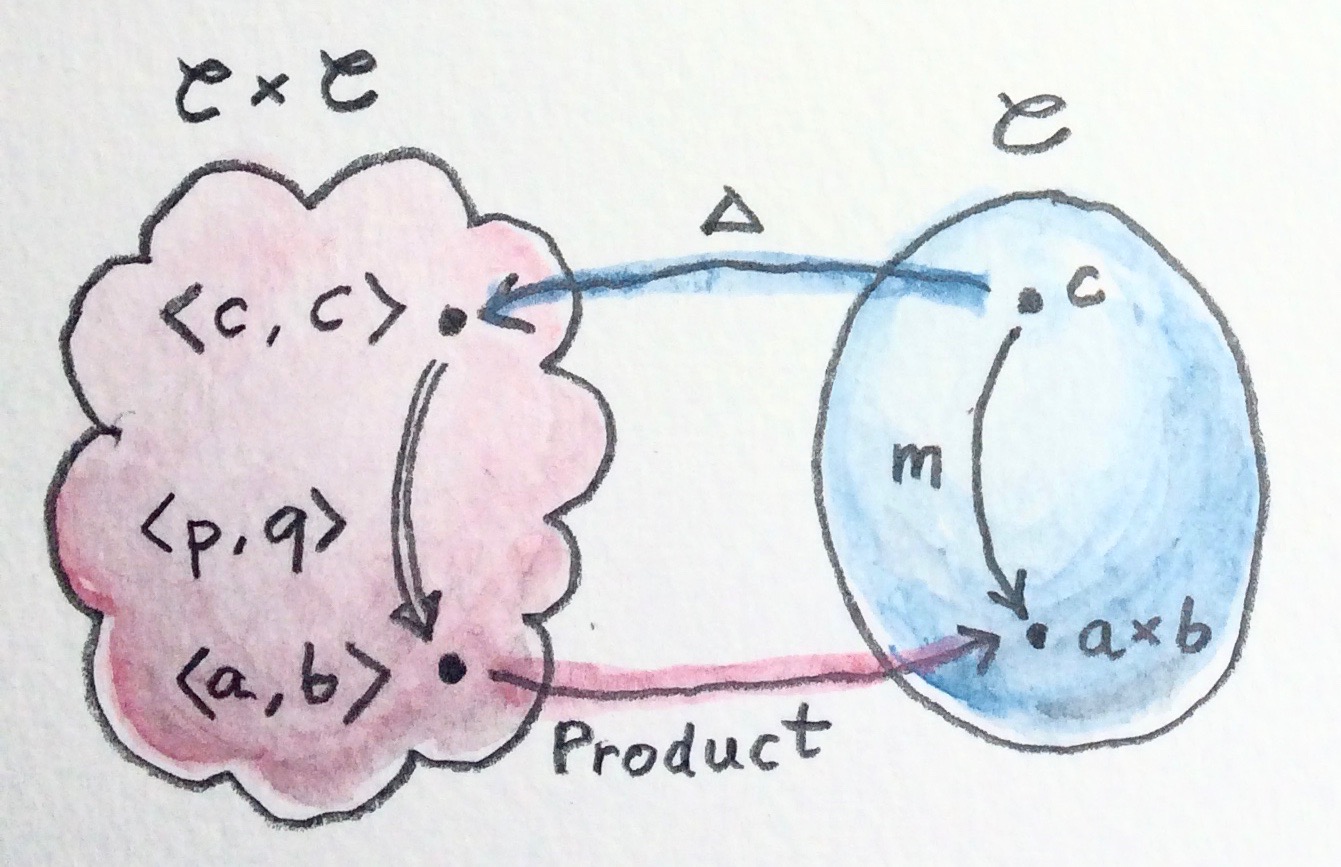 𝒞 × 𝒞
𝒞
Δ
<c, c>
c
m
<p, q>
<a, b>
a×b
Product